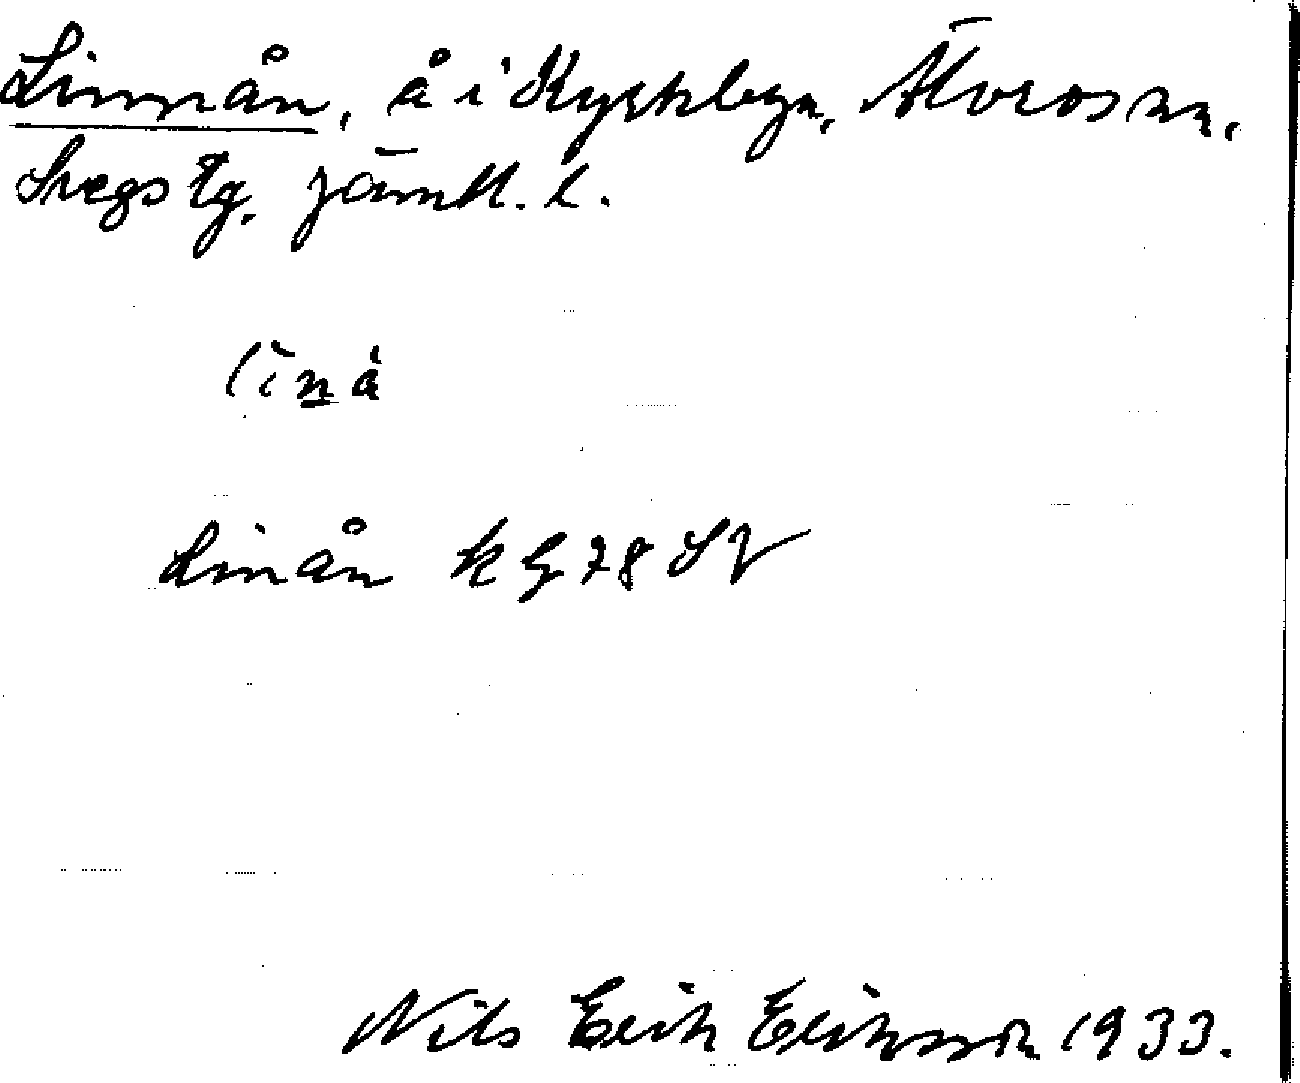 Linnån, å i Kyrkbyn, Älvros sn,
Svegs tg. Jämtl. l.
līn̲å
Linån k G 78 SV
Nils Erik Eriksson 1933.